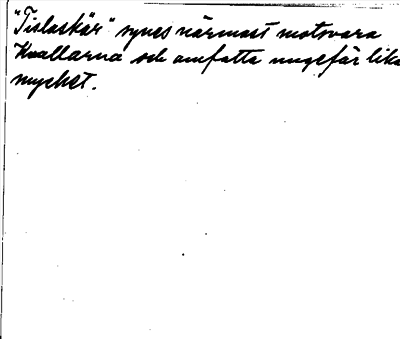 "Tislaskär" synes närmast motsvara
Kvallarna och omfatta ungefär lika
mycket.